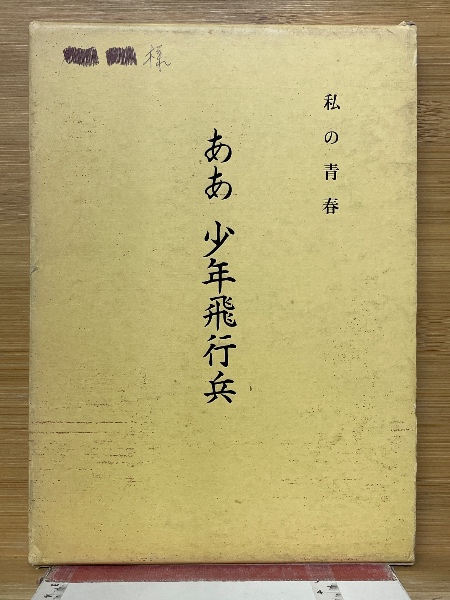 様
私の青春
ああ 少年飛行兵